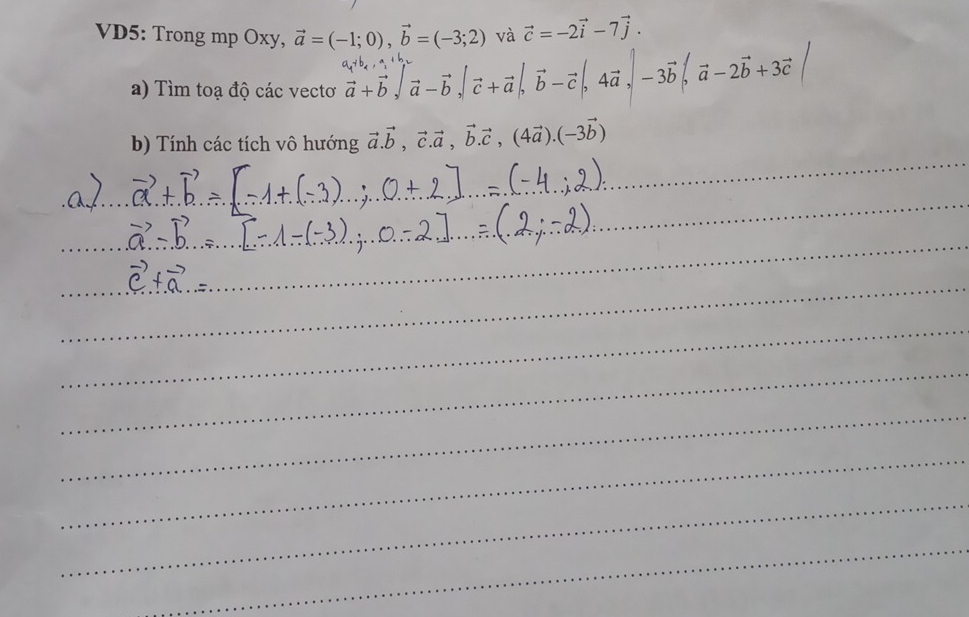 VD5: Trong mp Oxy, a⃗ = (−1; 0), b⃗ = (−3;2) và c⃗ = −2i⃗ − 7j⃗ .
a₁+b₁ , a₂+b₂
a) Tìm toạ độ các vectơ a⃗ + b⃗ , a⃗ − b⃗ , c⃗ + a⃗ , b⃗ − c⃗ , 4a⃗ , − 3b⃗ , a⃗ − 2b⃗ + 3c⃗
b) Tính các tích vô hướng a⃗.b⃗ , c⃗.a⃗ , b⃗.c⃗ , (4a⃗).(−3b⃗)
a) a⃗ + b⃗ = [−1+(−3) ; 0+2] = (−4 ; 2)
a⃗ − b⃗ = [−1−(−3) ; 0−2] = (2 ; −2)
c⃗ + a⃗ =